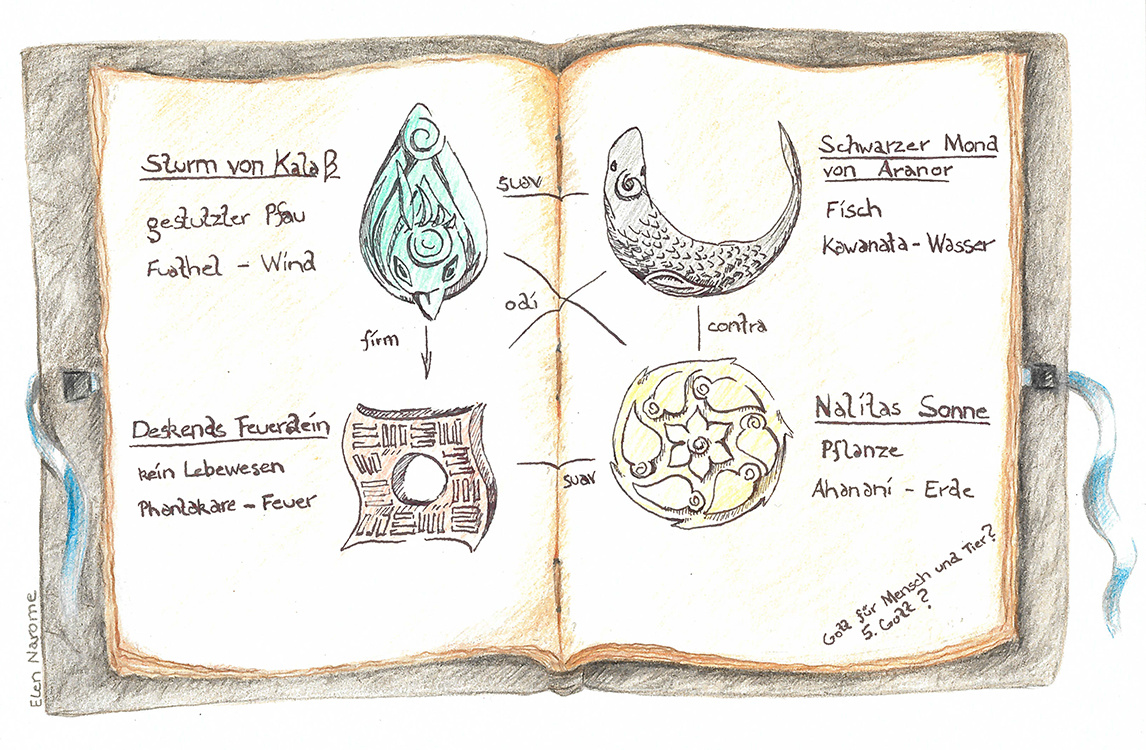 Sturm von Kalaß
gestutzter Pfau
Fuathel - Wind
firm
Deskends Feuerstein
kein Lebewesen
Phantakare - Feuer
suav
odi
contra
suav
Schwarzer Mond
von Aranor
Fisch
Kawanata - Wasser
Nalitas Sonne
Pflanze
Ahanani - Erde
Gott für Mensch und Tier?
5. Gott?
Elen Narome